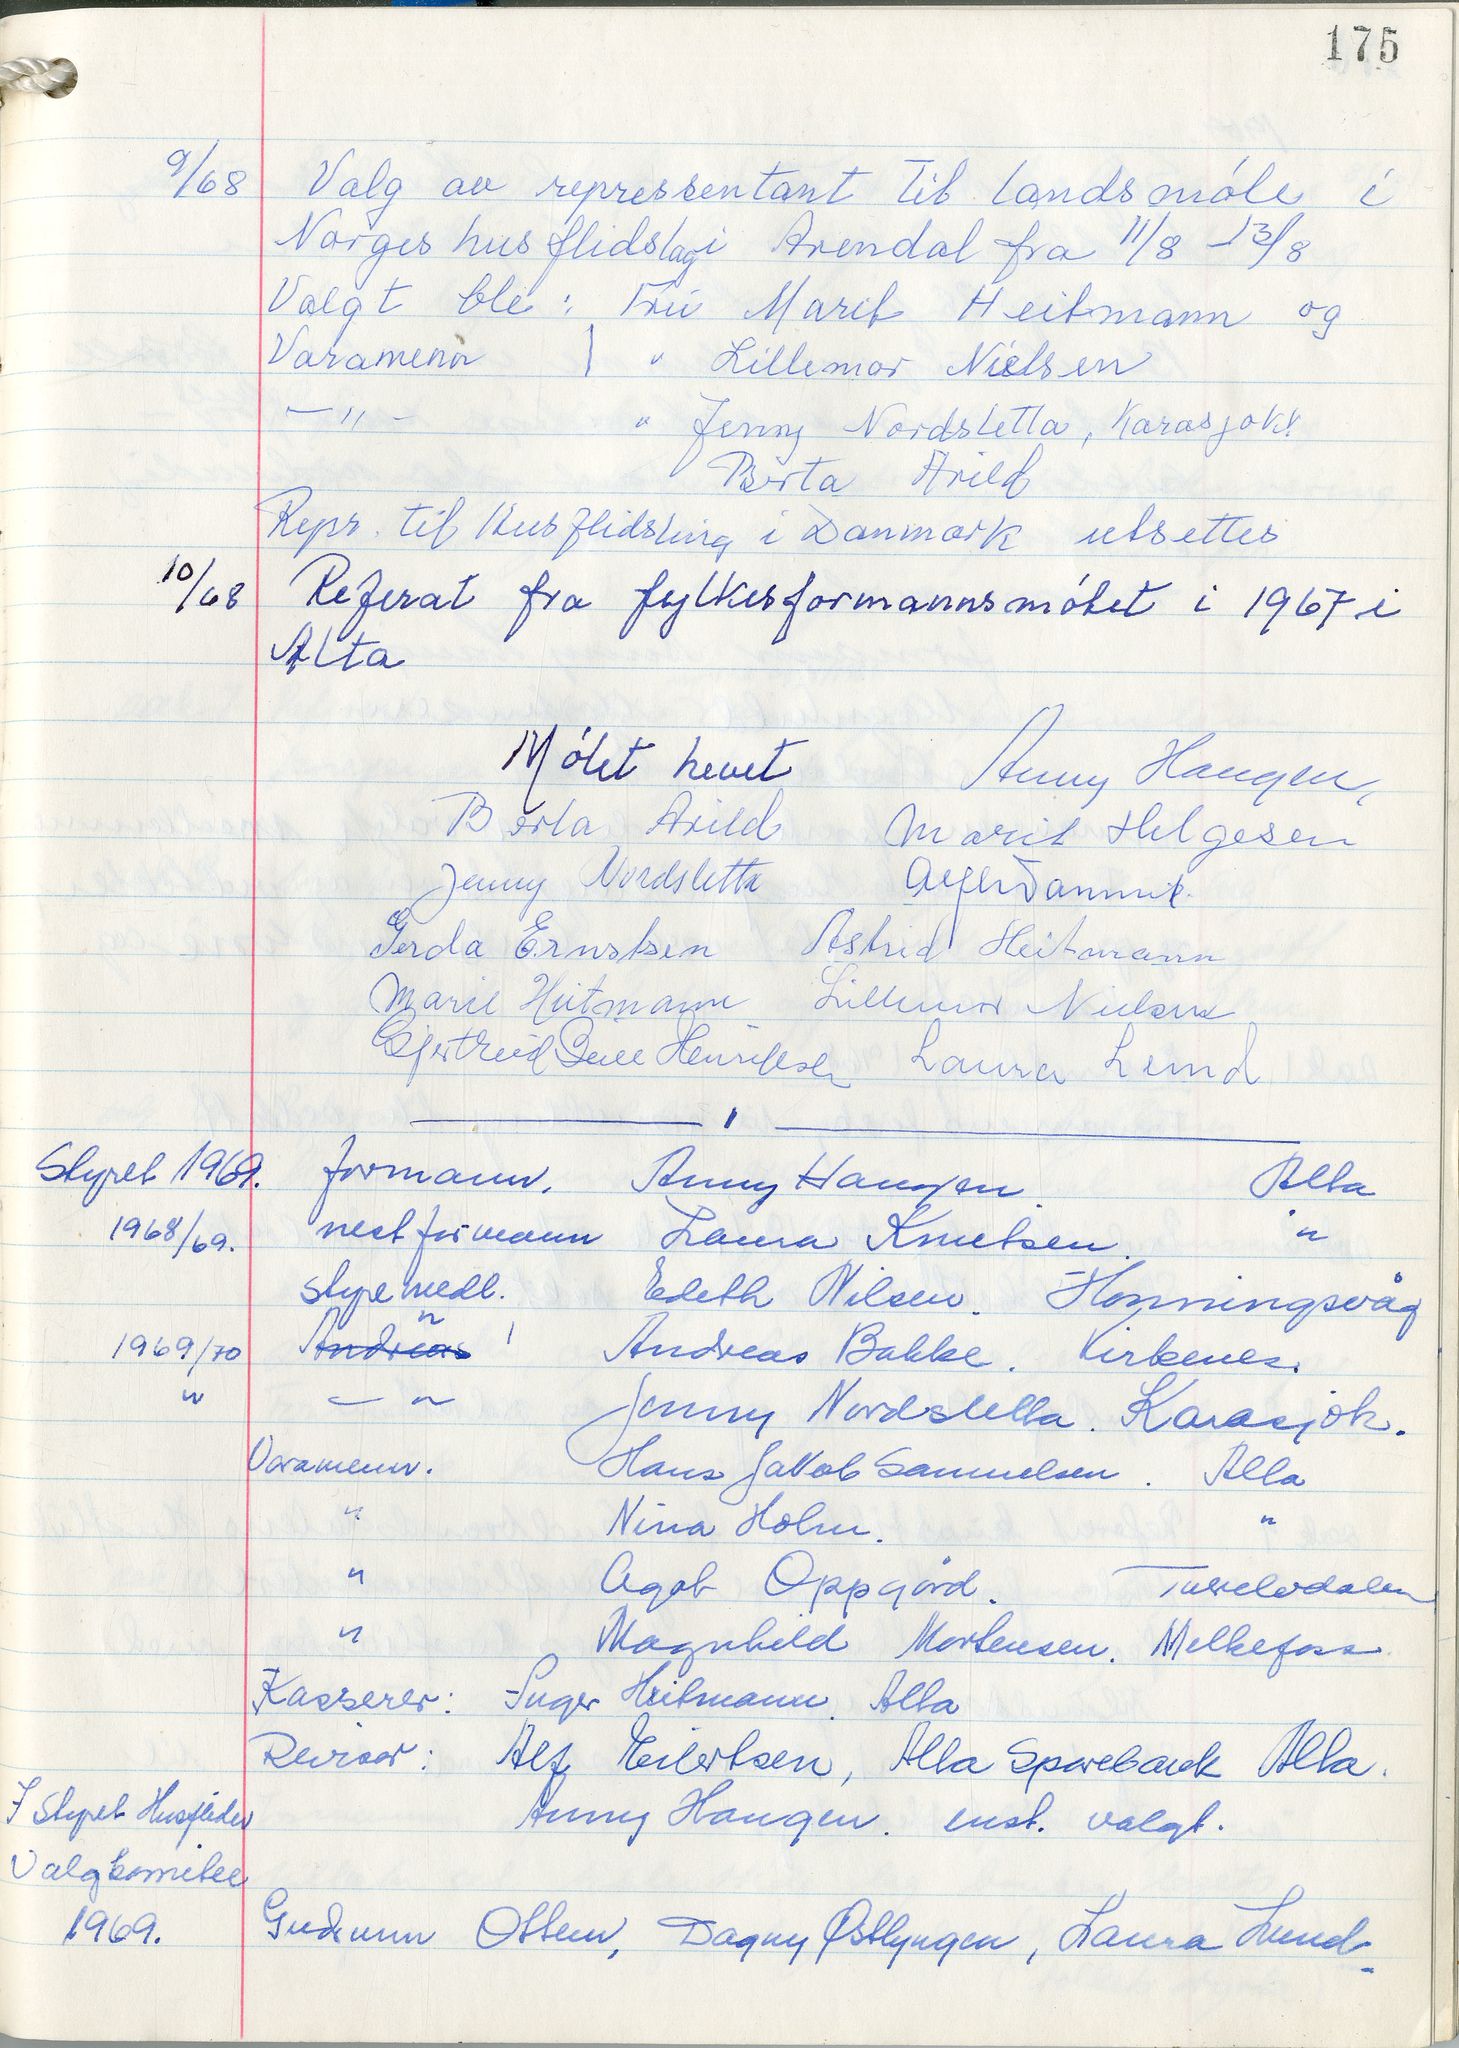 175
9/68 Valg av repressentant til landsmøte i
Norges husflidslag i Arendal fra 11/8 - 13/8
Valgt ble: Fru Marit Heitmann og
Varamenn " Lillemor Nielsen
— " — " Jenny Nordsletta, Karasjokk
Berta Arild
Repr. til Husflidsting i Danmark utsettes
10/68 Referat fra fylkesformannsmøtet i 1967 i
Alta
Møtet hevet Anny Haugen,
Berta Arild Marit Helgesen
Jenny Nordsletta
Gerda Ernstsen Astrid Heitmann
Marit Heitmann Lillemor Nielsen
Gjertrud Henriksen Laura Lund
Styret 1969. formann. Anny Haugen. Alta
1968/69. nestformann Laura Knutsen. "
styremedl. Edeth Nilsen. Honningsvåg
"
1969/70 Andreas Andreas Bakke. Kirkenes.
" — " Jenny Nordsletta. Karasjok.
Varamenn. Hans Jakob Samuelsen. Alta
" Nina Holm. "
" Agot Oppgård.
" Magnhild Mortensen. Melkefoss
Kasserer: Inger Heitmann. Alta
Revisor: Alf Eilertsen, Alta Sparebank Alta.
I Styret Husfliden Anny Haugen. enst. valgt.
Valgkomitee
1969. Gudrunn Ottem, Dagny Østlyngen, Laura Lund.